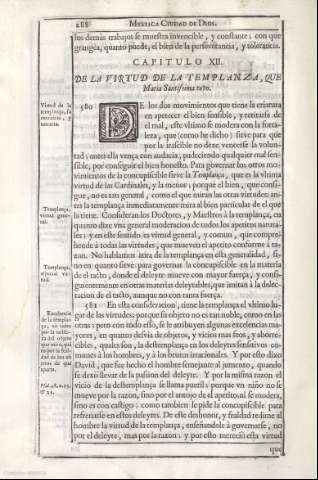 288 MYSTICA CIUDAD DE DIOS.
los demàs trabajos se muestra invencible, y constante: con que
grangéa, quanto puede, el bien de la perseverancia, y tolerancia.
CAPITULO XII.
DE LA VIRTUD DE LA TEMPLANZA, QUE
Maria Santissima tuvo.
Virtud de la templança, su
580 DE los dos movimientos que tiene la criatura
en apetecer el bien sensible, y retirarse de
el mal, este vltimo se modera con la forta-
leza, que (como he dicho) sirve para que
por la irascible no dexe vencerse la volun-
tad; antes ella vença con audacia, padeciendo qualquier mal sen-
sible, por conseguir el bien honesto. Para governar los otros mo-
vimientos de la concupiscible sirve la Templança, que es la vltima
virtud de las Cardinales, y la menor: porque el bien, que consi-
gue, no es tan general, como el que miran las otras virtudes; an-
tes la templança inmediatamente mira al bien particular de el que
la tiene. Consideran los Doctores, y Maestros à la templança, en
quanto dize vna general moderacion de todos los apetitos natura-
les: y en este sentido es virtud general, y comun, que compre-
hende à todas las virtudes, que mueven el apetito conforme à ra-
zon. No hablamos aora de la templança en esta generalidad, si-
no en quanto sirve para governar la concupiscible en la materia
de el tacto, donde el deleyte mueve con mayor fuerça, y consi-
guientemente en otras materias deleytables, que imitan à la delec-
tacion de el tacto, aunque no con tanta fuerça.
Templança, virtud general.
Templança,
virtud.
581 En esta consideracion, tiene la templança el vltimo lu-
gar de las virtudes; porque su objeto no es tan noble, como en las
otras: pero con todo esso, se le atribuyen algunas excelencias ma-
yores, en quanto desvia de objetos, y vicios mas feos, y aborre-
cibles, quales son, la destemplança en los deleytes sensitivos co-
munes à los hombres, y à los brutos irracionales. Y por esto dixo
David, que fue hecho el hombre semejante al jumento, quando
se dexò llevar de la passion del deleyte. Y por la misma razon el
vicio de la destemplança se llama pueril; porque vn niño no se
mueve por la razon, sino por el antojo de el apetito; ni se modera,
sino es con castigo: como tambien le pide la concupiscible para
refrenarse en estos deleytes. De este deshonor, y fealdad redime al
hombre la virtud de la templança, enseñandole à governarse, no
por el deleyte, mas por la razon: y por esto mereciò esta virtud
que